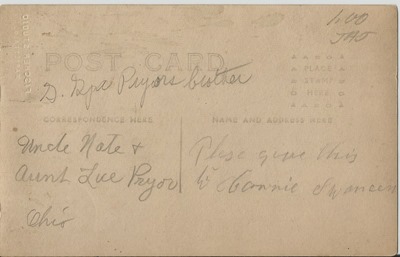 1.00
POST CARD
PLACE
STAMP
HERE
Pryors brother
CORRESPONDENCE HERE
NAME AND ADDRESS HERE
Uncle Nate &
Aunt Lue Pryor
Ohio
Please give this
to Hannie